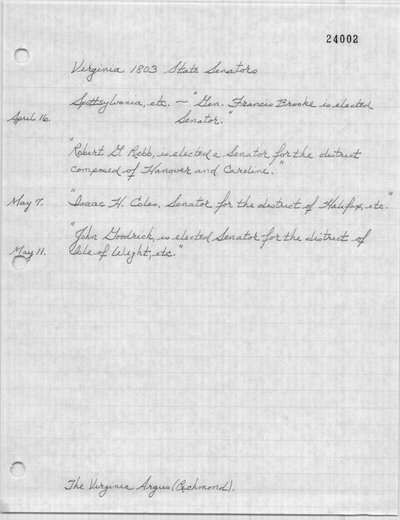 24002
Virginia 1803 State Senators
Spottsylvania, etc. — "Gen. Francis Brooke is elected
April 16. Senator."
"Robert G. Robb, is elected a Senator for the district
composed of Hanover and Caroline."
May 7. "Isaac H. Coles, Senator for the district of Halifax, etc."
"John Goodrich, is elected Senator for the district of
May 11. Isle of Wight, etc."
The Virginia Argus (Richmond).